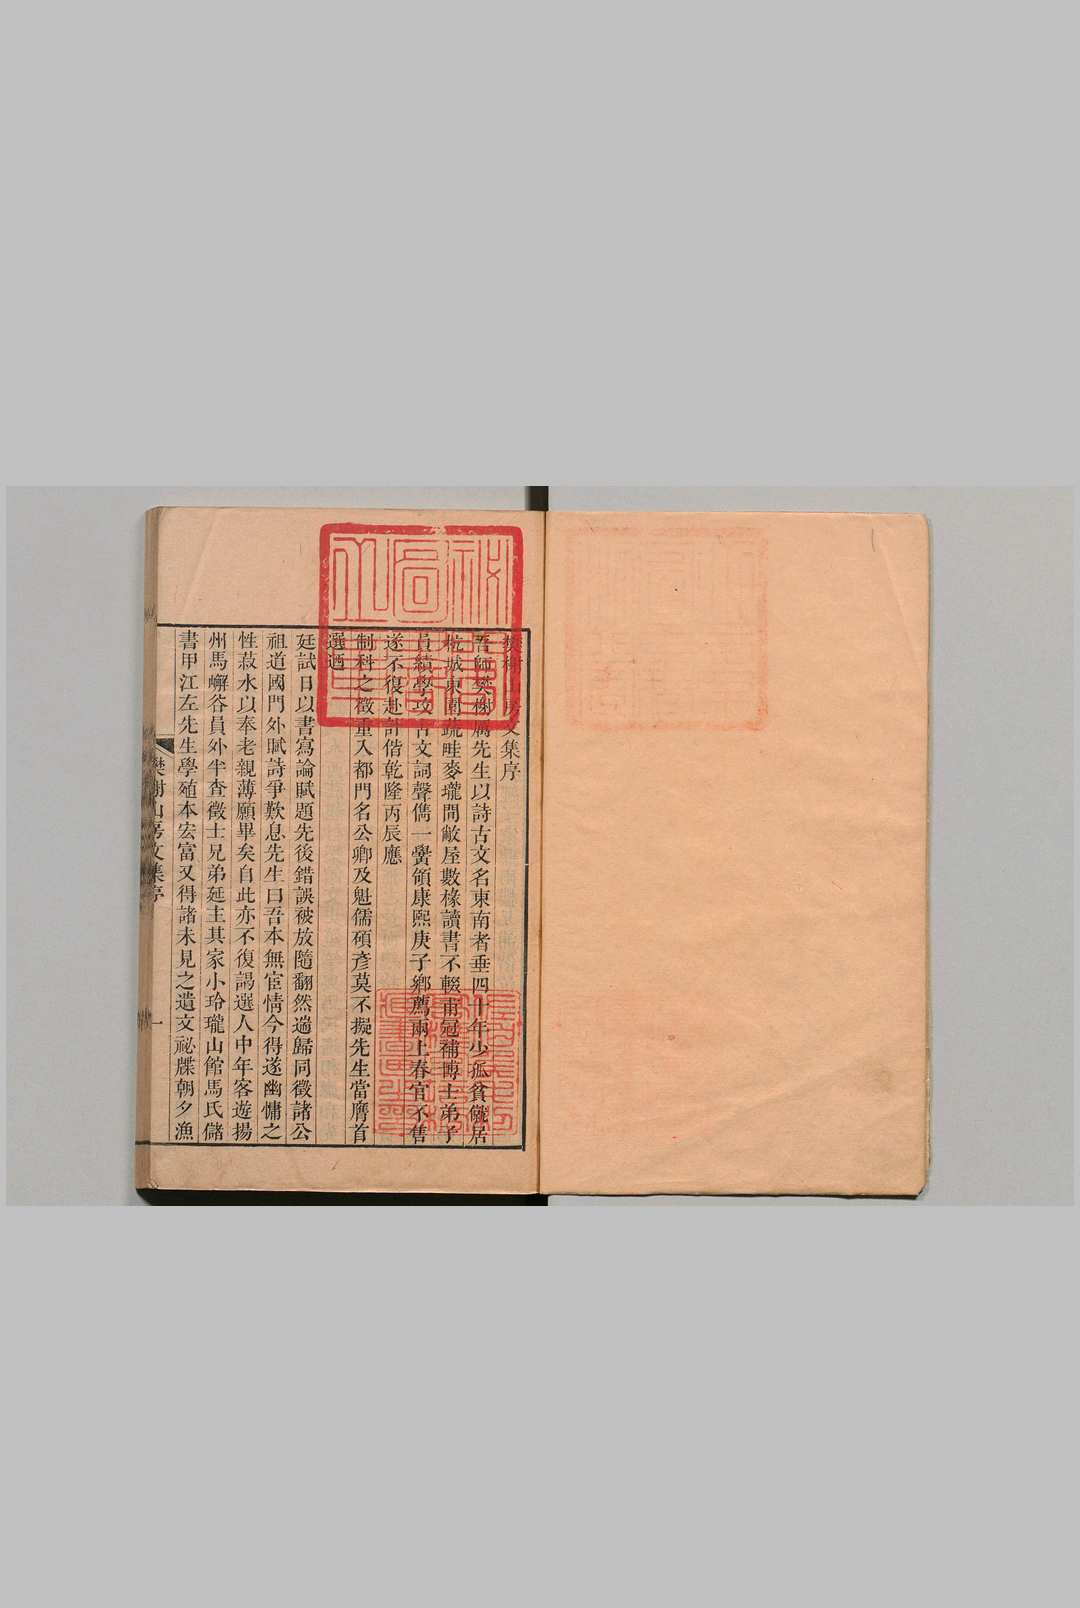 樊榭山房文集序
吾師樊榭厲先生以詩古文名東南者垂四十年少孤貧僦居
杭城東園蔬畦麥壠間敝屋數椽讀書不輟甫冠補博士弟子
員績學攻古文詞聲儁一黌領康熙庚子鄉薦兩上春官不售
遂不復赴計偕乾隆丙辰應
制科之徵重入都門名公卿及魁儒碩彥莫不擬先生當膺首
選廼
廷試日以書寫論賦題先後錯誤被放隨翻然遄歸同徵諸公
祖道國門外賦詩爭歎息先生曰吾本無宦情今得遂幽慵之
性菽水以奉老親薄願畢矣自此亦不復謁選人中年客遊揚
州馬嶰谷員外半查徵士兄弟延主其家小玲瓏山館馬氏儲
書甲江左先生學殖本宏富又得諸未見之遺文祕牒朝夕漁
樊榭山房文集序
一